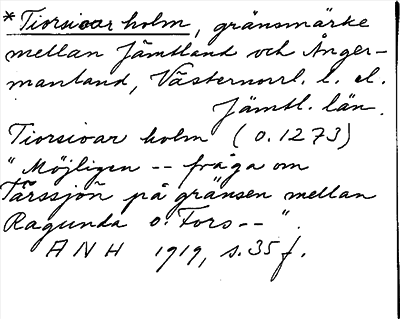 *Tiorsioar holm, gränsmärke
mellan Jämtland och Ånger-
manland, Västernorrl. l. el.
Jämtl. län.
Tiorsioar holm (o. 1273)
"Möjligen -- fråga om
Tärssjön på gränsen mellan
Ragunda o. Fors -- ".
ANH 1919, s. 35 f.